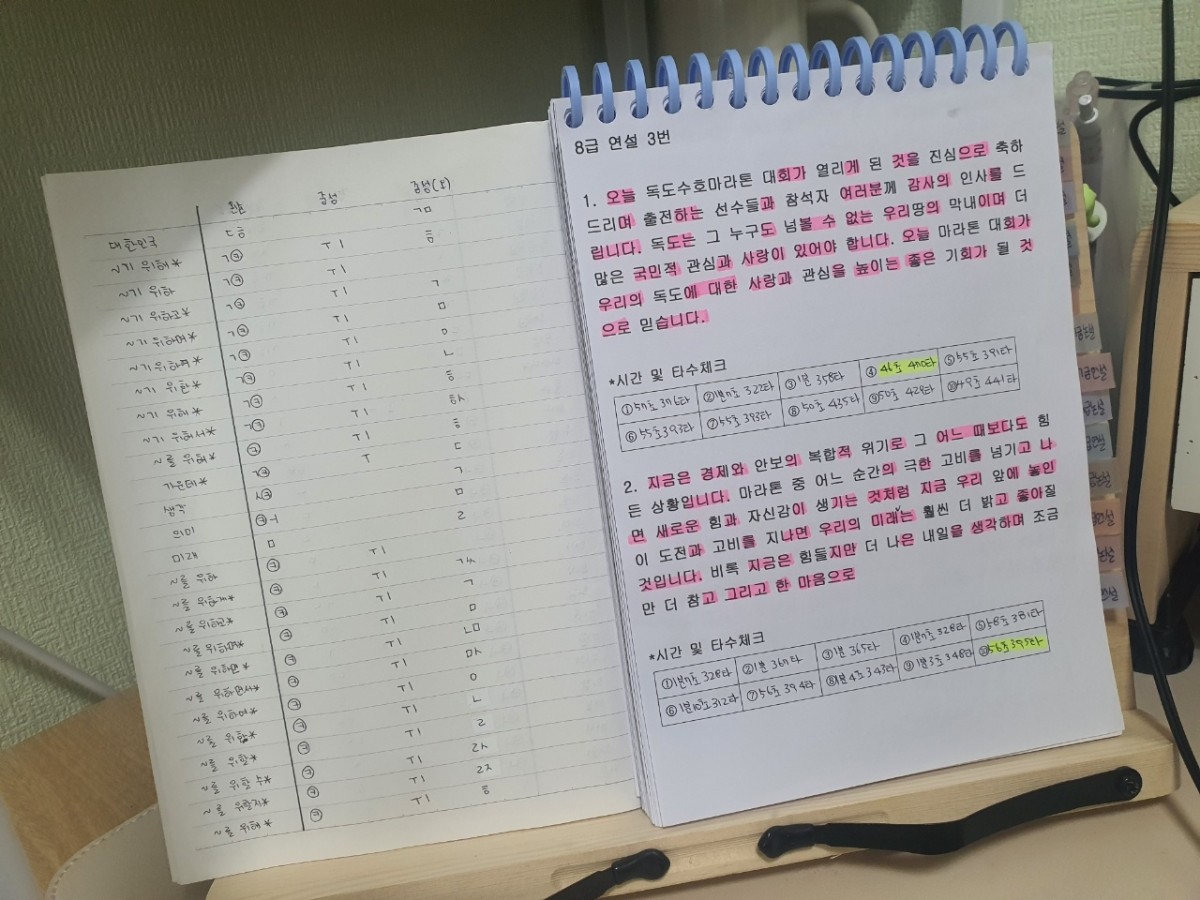 초성 중성 종성(오)
대한민국 ㄷㅎ ㄱㅁ
~기 위해* ㄱㅋ ㅜㅣ ㅎ
~기 위하 ㄱㅋ ㅜㅣ
~기 위하고* ㄱㅋ ㅜㅣ ㄱ
~기 위하며* ㄱㅋ ㅜㅣ ㅁ
~기 위하여* ㄱㅋ ㅜㅣ ㅇ
~기 위한* ㄱㅋ ㅜㅣ ㄴ
~기 위해*
~기 위해서*
~를 위해*
가운데*
생각
의미
미래
~를 위하
~를 위하게*
~를 위하고*
~를 위하며*
~를 위하면*
~를 위하면서*
~를 위하여*
~를 위한*
~를 위할*
~를 위할 수*
~를 위할지*
~를 위해*
8급 연설 3번
1. 오늘 독도수호마라톤 대회가 열리게 된 것을 진심으로 축하
드리며 출전하는 선수들과 참석자 여러분께 감사의 인사를 드
립니다. 독도는 그 누구도 넘볼 수 없는 우리땅의 막내이며 더
많은 국민적 관심과 사랑이 있어야 합니다. 오늘 마라톤 대회가
우리의 독도에 대한 사랑과 관심을 높이는 좋은 기회가 될 것
으로 믿습니다.
*시간 및 타수체크
①57초 376타 ②1분7초 322타 ③1분 358타 ④46초 470타 ⑤55초 391타
⑥55초 393타 ⑦55초 393타 ⑧50초 435타 ⑨50초 428타 ⑩49초 441타
2. 지금은 경제와 안보의 복합적 위기로 그 어느 때보다도 힘
든 상황입니다. 마라톤 중 어느 순간의 극한 고비를 넘기고 나
면 새로운 힘과 자신감이 생기는 것처럼 지금 우리 앞에 놓인
이 도전과 고비를 지나면 우리의 미래는 훨씬 더 밝고 좋아질
것입니다. 비록 지금은 힘들지만 더 나은 내일을 생각하며 조금
만 더 참고 그리고 한 마음으로
*시간 및 타수체크
①1분7초 328타 ②1분 367타 ③1분 365타 ④1분7초 328타 ⑤58초 381타
⑥1분10초 312타 ⑦56초 394타 ⑧1분4초 343타 ⑨1분3초 348타 ⑩56초 395타